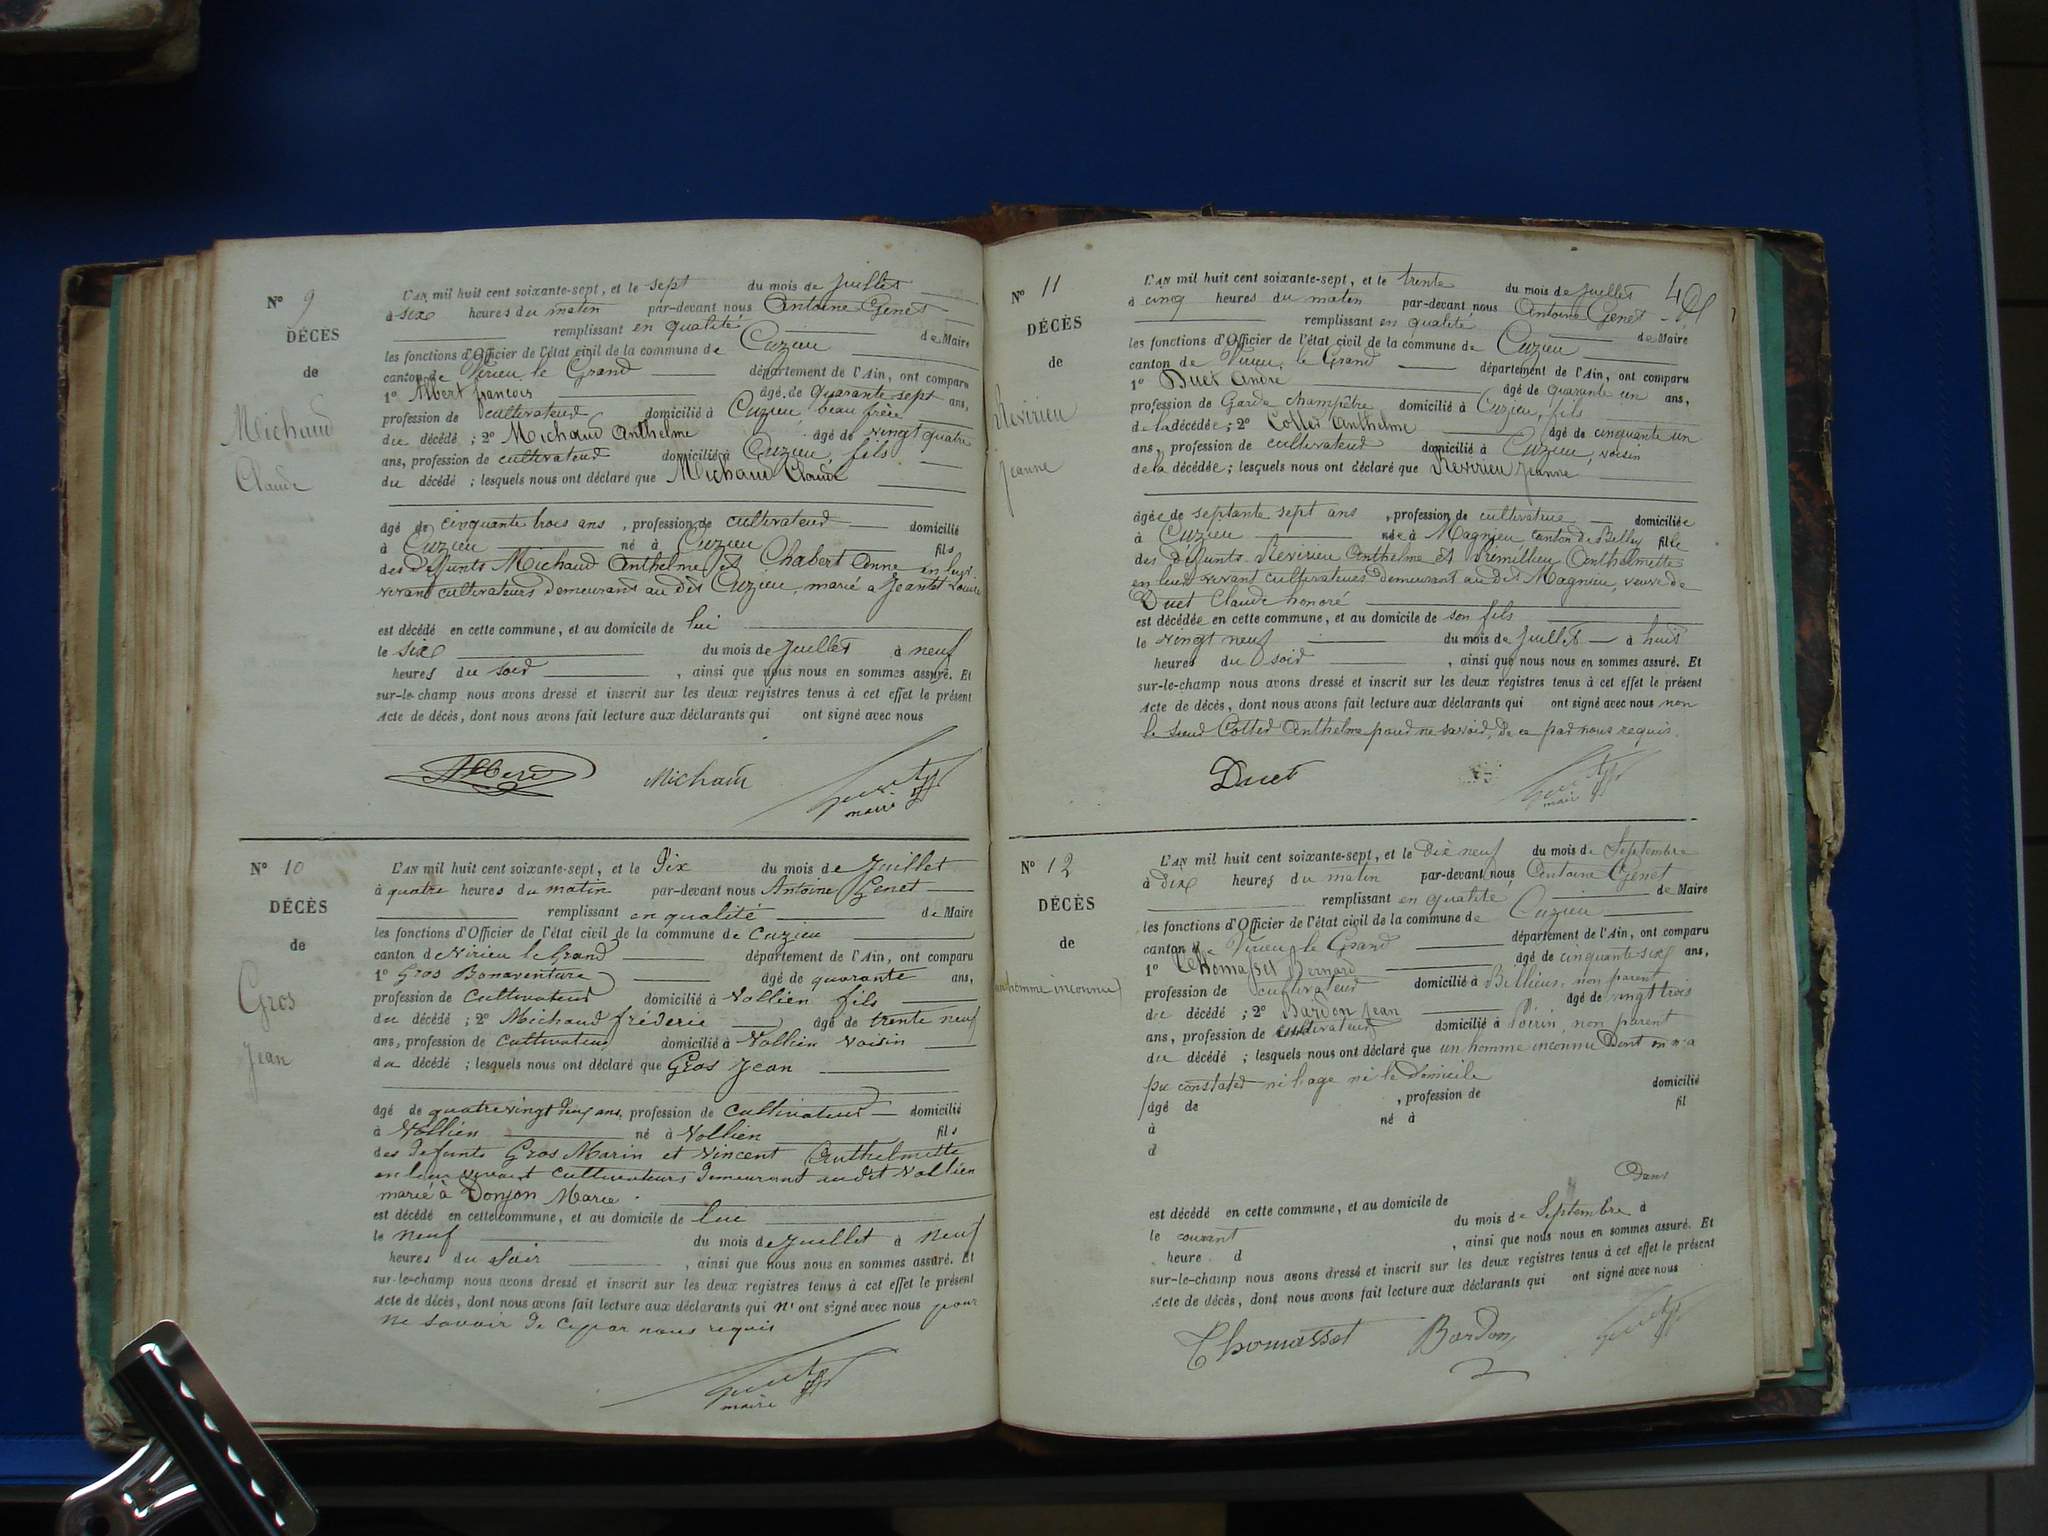 N° 9
DÉCÈS
de
Michaud
Claude
L'AN mil huit cent soixante-sept, et le sept du mois de Juillet
à six heures du matin par-devant nous Antoine Genet
remplissant en qualité de Maire
les fonctions d'Officier de l'état civil de la commune de Cuzieu
canton de Virieu le Grand département de l'Ain, ont comparu
1° Albert francois âgé de quarante sept ans,
profession de cultivateur domicilié à Cuzieu beau frère
du décédé ; 2° Michaud Anthelme âgé de vingt quatre
ans, profession de cultivateur domicilié à Cuzieu, fils
du décédé ; lesquels nous ont déclaré que Michaud Claude
âgé de cinquante trois ans , profession de cultivateur domicilié
à Cuzieu né à Cuzieu fils
des défunts Michaud Anthelme et Chabert Anne en leur
vivant cultivateurs demeurant au dit Cuzieu, marié a Jeantet Louise
est décédé en cette commune, et au domicile de lui
le six du mois de Juillet à neuf
heures du soir , ainsi que nous nous en sommes assuré. Et
sur-le-champ nous avons dressé et inscrit sur les deux registres tenus à cet effet le présent
Acte de décès, dont nous avons fait lecture aux déclarants qui ont signé avec nous
Albert Michaud Genet
maire
N° 10
DÉCÈS
de
Gros
Jean
L'AN mil huit cent soixante-sept, et le Dix du mois de Juillet
à quatre heures du matin par-devant nous Antoine Genet
remplissant en qualité de Maire
les fonctions d'Officier de l'état civil de la commune de Cuzieu
canton de Virieu le Grand département de l'Ain, ont comparu
1° Gros Bonaventure âgé de quarante ans,
profession de Cultivateur domicilié à Vollien fils
du décédé ; 2° Michaud fréderic âgé de trente neuf
ans, profession de Cultivateur domicilié à Vollien Voisin
du décédé ; lesquels nous ont déclaré que Gros Jean
âgé de quatrevingt deux ans, profession de Cultivateur domicilié
à Vollien né à Vollien fils
des défunts Gros Marin et Vincent Anthelmette
en leur vivant Cultivateurs demeurant au dit Vollien
marié à Donjon Marie
est décédé en cette commune, et au domicile de lui
le neuf du mois de Juillet à neuf
heures du Soir , ainsi que nous nous en sommes assuré. Et
sur-le-champ nous avons dressé et inscrit sur les deux registres tenus à cet effet le présent
Acte de décès, dont nous avons fait lecture aux déclarants qui n'ont signé avec nous pour
ne savoir de ce par nous requis
Genet
maire
N° 11
DÉCÈS
de
Revirieu
Jeanne
L'AN mil huit cent soixante-sept, et le trente du mois de Juillet
à cinq heures du matin par-devant nous Antoine Genet
remplissant en qualité de Maire
les fonctions d'Officier de l'état civil de la commune de Cuzieu
canton de Virieu le Grand département de l'Ain, ont comparu
1° Duet André âgé de quarante un ans,
profession de Garde champêtre domicilié à Cuzieu, fils
de la décédée ; 2° Cotter Anthelme âgé de cinquante un
ans, profession de cultivateur domicilié à Cuzieu, voisin
de la décédée ; lesquels nous ont déclaré que Revirieu Jeanne
âgée de septante sept ans , profession de cultivatrice domiciliée
à Cuzieu née à Magnieu canton de Belley fille
des défunts Revirieu Anthelme et Prémillieu Anthelmette
en leur vivant cultivateurs demeurant au dit Magnieu, veuve de
Duet Claude honoré
est décédée en cette commune, et au domicile de son fils
le vingt neuf du mois de Juillet à huit
heures du soir , ainsi que nous nous en sommes assuré. Et
sur-le-champ nous avons dressé et inscrit sur les deux registres tenus à cet effet le présent
Acte de décès, dont nous avons fait lecture aux déclarants qui ont signé avec nous non
le sieur Cotter Anthelme pour ne savoir, de ce par nous requis.
Duet Genet
maire
N° 12
DÉCÈS
de
un homme inconnu
L'AN mil huit cent soixante-sept, et le dix neuf du mois de Septembre
à dix heures du matin par-devant nous Antoine Genet
remplissant en qualité de Maire
les fonctions d'Officier de l'état civil de la commune de Cuzieu
canton de Virieu le Grand département de l'Ain, ont comparu
1° Thomasset Bernard âgé de cinquante six ans,
profession de cultivateur domicilié à Billieu, non parent
du décédé ; 2° Bardon Jean âgé de vingt trois
ans, profession de cultivateur domicilié à non parent
du décédé ; lesquels nous ont déclaré que un homme inconnu dont on n'a
pu constater ni l'age ni le domicile
âgé de , profession de domicilié
à né à fil
d
Dans
est décédé en cette commune, et au domicile de
le courant du mois de Septembre à
heure d , ainsi que nous nous en sommes assuré. Et
sur-le-champ nous avons dressé et inscrit sur les deux registres tenus à cet effet le présent
Acte de décès, dont nous avons fait lecture aux déclarants qui ont signé avec nous
Thomasset Bardon Genet